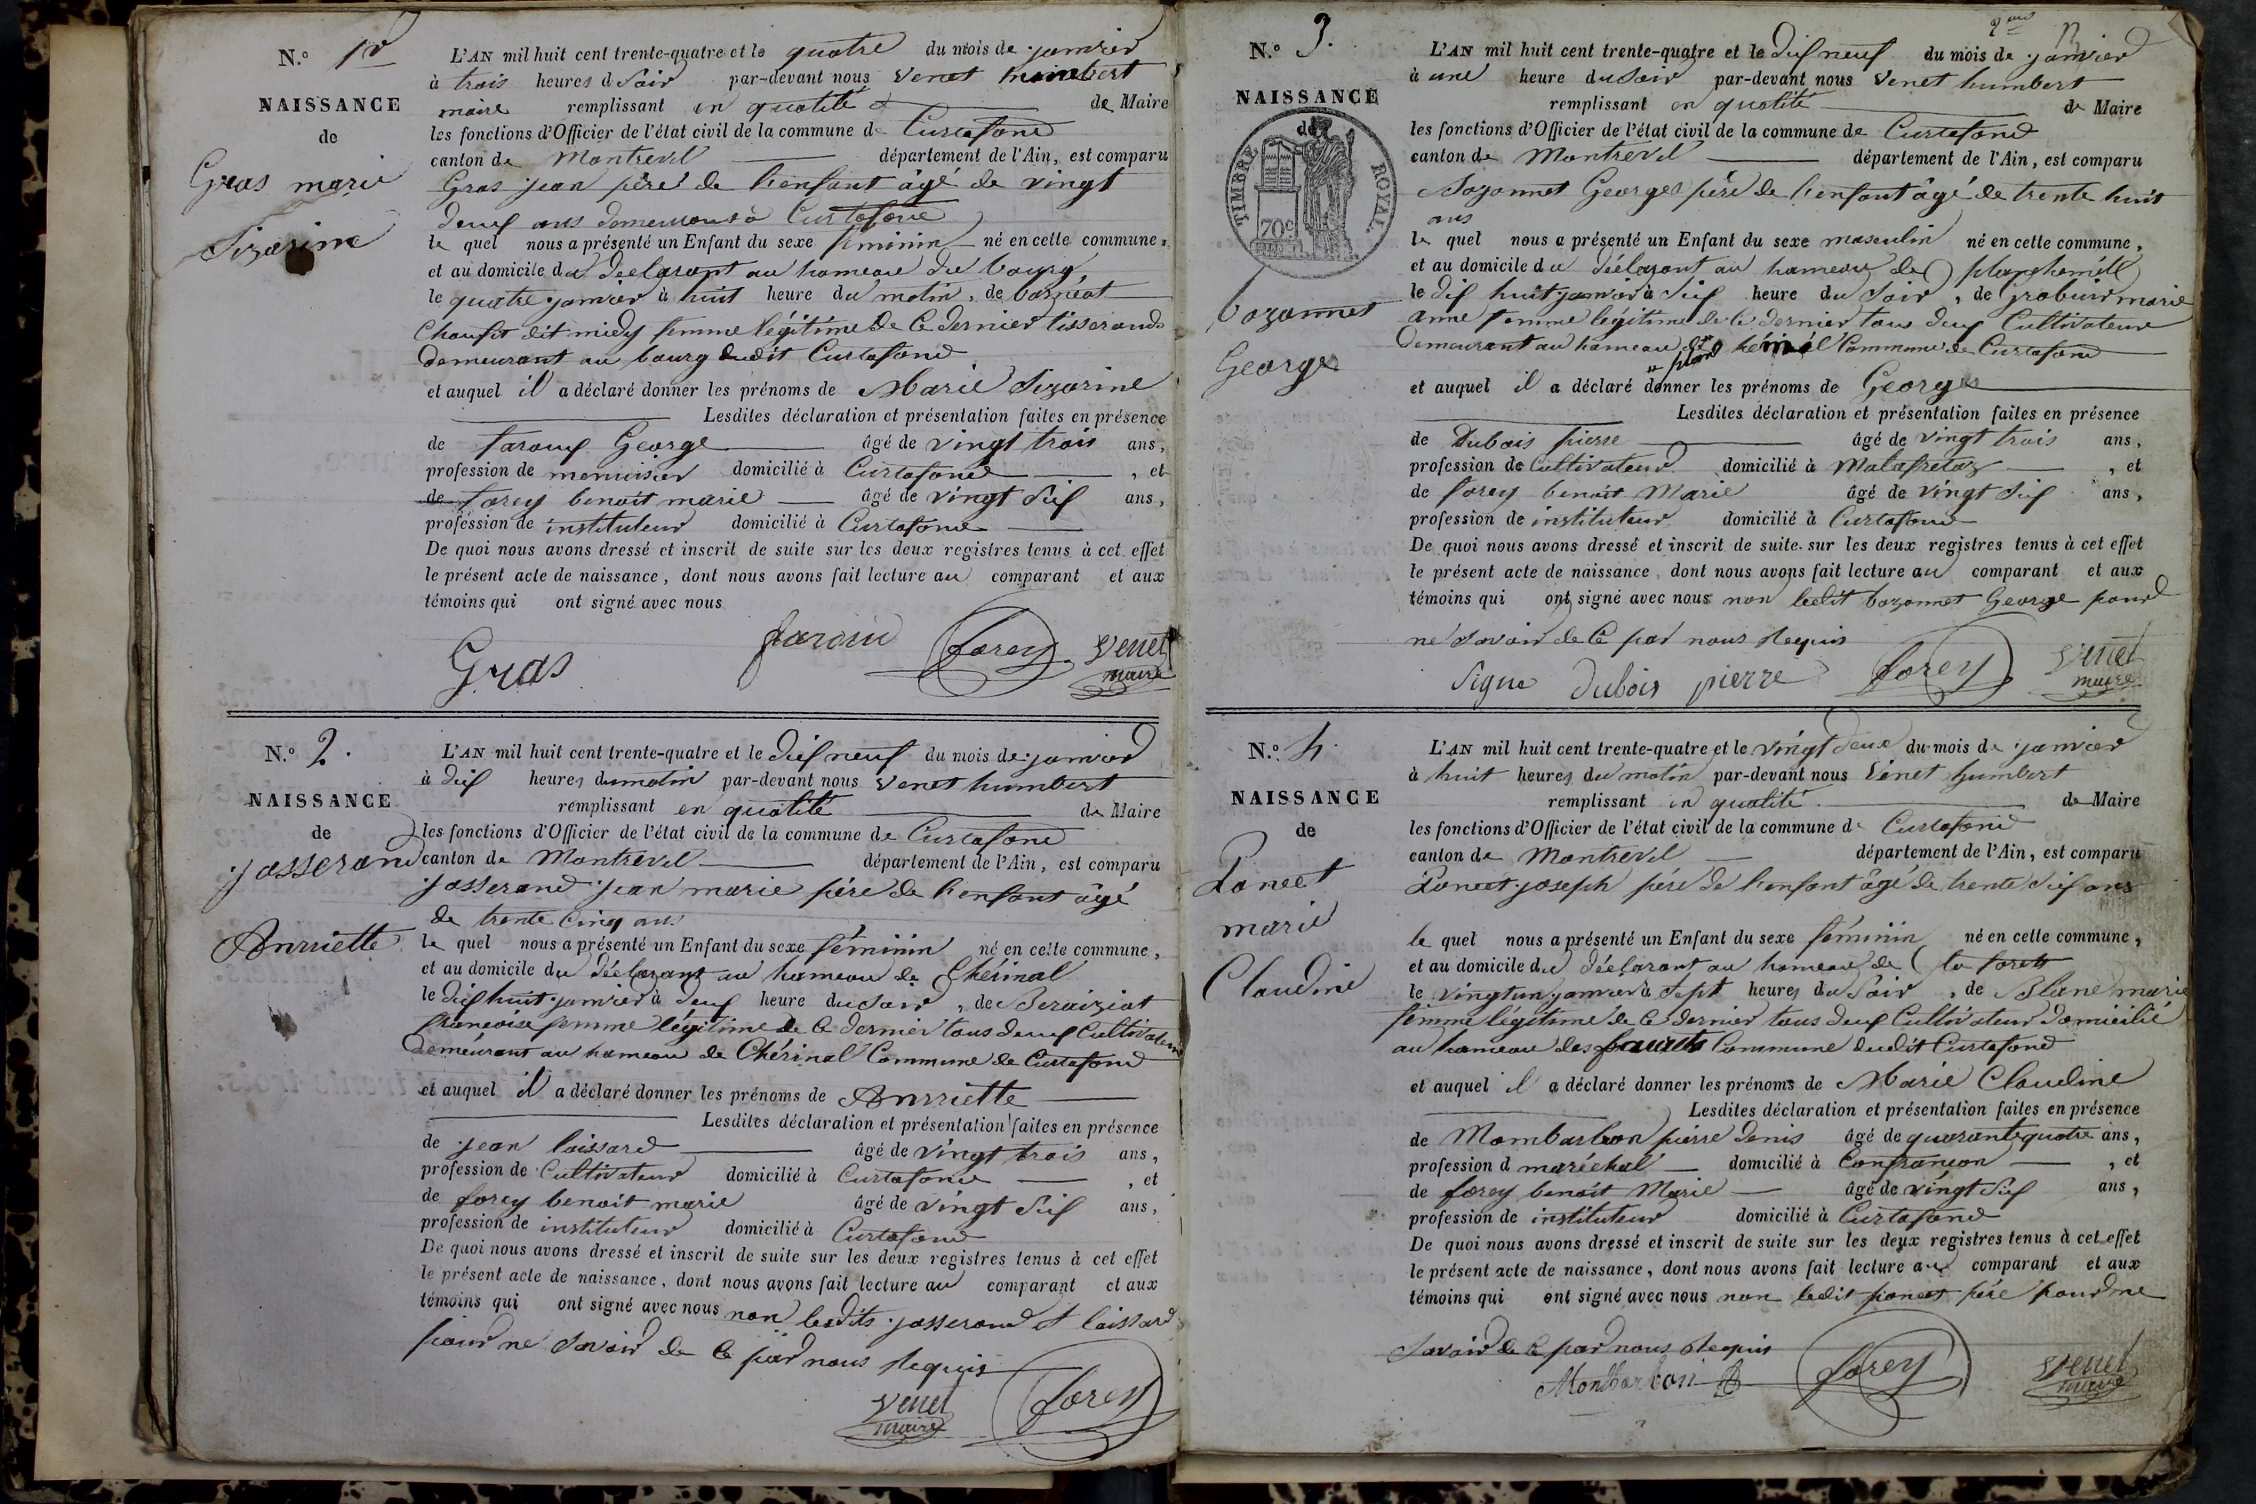 N.o 1er
NAISSANCE
de
Gras marie
Sizarine
L'AN mil huit cent trente-quatre et le quatre du mois de janvier
à trois heures d Soir par-devant nous Venet humbert
maire remplissant en qualité de Maire
les fonctions d'Officier de l'état civil de la commune d Curtafond
canton de Montrevel département de l'Ain, est comparu
Gras jean père de l'enfant âgé de vingt
deux ans demeurant à Curtafond
le quel nous a présenté un Enfant du sexe féminin né en cette commune,
et au domicile du déclarant au hameau du bourg,
le quatre janvier à huit heure du matin, de
dit femme légitime de ce dernier tisserands
demeurant au bourg dudit Curtafond
et auquel il a déclaré donner les prénoms de Marie Sizarine
Lesdites déclaration et présentation faites en présence
de George âgé de vingt trois ans,
profession de menuisier domicilié à Curtafond , et
de forey benoit marie âgé de vingt Six ans,
profession de instituteur domicilié à Curtafond
De quoi nous avons dressé et inscrit de suite sur les deux registres tenus à cet effet
le présent acte de naissance, dont nous avons fait lecture au comparant et aux
témoins qui ont signé avec nous
Gras forey Venet
maire
N.o 2.
NAISSANCE
de
josserand
Anrriette
L'AN mil huit cent trente-quatre et le dix neuf du mois de janvier
à dix heures du matin par-devant nous Venet humbert
remplissant en qualité de Maire
les fonctions d'Officier de l'état civil de la commune de Curtafond
canton de Montrevel département de l'Ain, est comparu
josserand jean marie père de l'enfant âgé
de trente cinq ans
le quel nous a présenté un Enfant du sexe féminin né en cette commune,
et au domicile du déclarant au hameau de Chérinal
le dix huit janvier à deux heure du Soir, de Beraiziat
françoise femme légitime de ce dernier tous deux Cultivateurs
demeurant au hameau de Chérinal Commune de Curtafond
et auquel il a déclaré donner les prénoms de Anrriette
Lesdites déclaration et présentation faites en présence
de jean loissard âgé de vingt trois ans,
profession de Cultivateur domicilié à Curtafond , et
de forey benoit marie âgé de vingt Six ans,
profession de instituteur domicilié à Curtafond
De quoi nous avons dressé et inscrit de suite sur les deux registres tenus à cet effet
le présent acte de naissance, dont nous avons fait lecture au comparant et aux
témoins qui ont signé avec nous non lesdits josserand et loissard
pour ne Savoir de ce par nous Requis
Venet forey
maire
N.o 3.
NAISSANCE
de
TIMBRE ROYAL
70c
bozonnet
George
L'AN mil huit cent trente-quatre et le dix neuf du mois de janvier
à une heure du Soir par-devant nous Venet humbert
remplissant en qualité de Maire
les fonctions d'Officier de l'état civil de la commune de Curtafond
canton de Montrevel département de l'Ain, est comparu
Bozonnet Georges père de l'enfant âgé de trente huit
ans
le quel nous a présenté un Enfant du sexe masculin né en cette commune,
et au domicile du déclarant au hameau de
le dix huit janvier à Six heure du Soir, de Grobuis marie
anne femme légitime de ce dernier tous deux Cultivateurs
demeurant au hameau Commune de Curtafond
et auquel il a déclaré donner les prénoms de George
Lesdites déclaration et présentation faites en présence
de Dubois pierre âgé de vingt trois ans,
profession de Cultivateur domicilié à Malafretaz , et
de forey benoit Marie âgé de vingt Six ans,
profession de instituteur domicilié à Curtafond
De quoi nous avons dressé et inscrit de suite sur les deux registres tenus à cet effet
le présent acte de naissance, dont nous avons fait lecture au comparant et aux
témoins qui ont signé avec nous non ledit bozonnet George pour
ne Savoir de ce par nous Requis
Signe Dubois pierre forey Venet
maire
N.o 4.
NAISSANCE
de
Poncet
marie
Claudine
L'AN mil huit cent trente-quatre et le vingt deux du mois de janvier
à huit heures du matin par-devant nous Venet humbert
remplissant en qualité de Maire
les fonctions d'Officier de l'état civil de la commune d Curtafond
canton de Montrevel département de l'Ain, est comparu
Poncet joseph père de l'enfant âgé de trente Six ans
le quel nous a présenté un Enfant du sexe féminin né en cette commune,
et au domicile du déclarant au hameau de
le vingt un janvier à Sept heures du Soir, de Blanc marie
femme légitime de ce dernier tous deux Cultivateur domicilié
au hameau des Commune dudit Curtafond
et auquel il a déclaré donner les prénoms de Marie Claudine
Lesdites déclaration et présentation faites en présence
de Mombarbon pierre denis âgé de quarante quatre ans,
profession d maréchal domicilié à Confrançon , et
de forey benoit Marie âgé de vingt Six ans,
profession de instituteur domicilié à Curtafond
De quoi nous avons dressé et inscrit de suite sur les deux registres tenus à cet effet
le présent acte de naissance, dont nous avons fait lecture au comparant et aux
témoins qui ont signé avec nous non ledit poncet père pour ne
Savoir de ce par nous Requis
Montbarbon forey Venet
maire